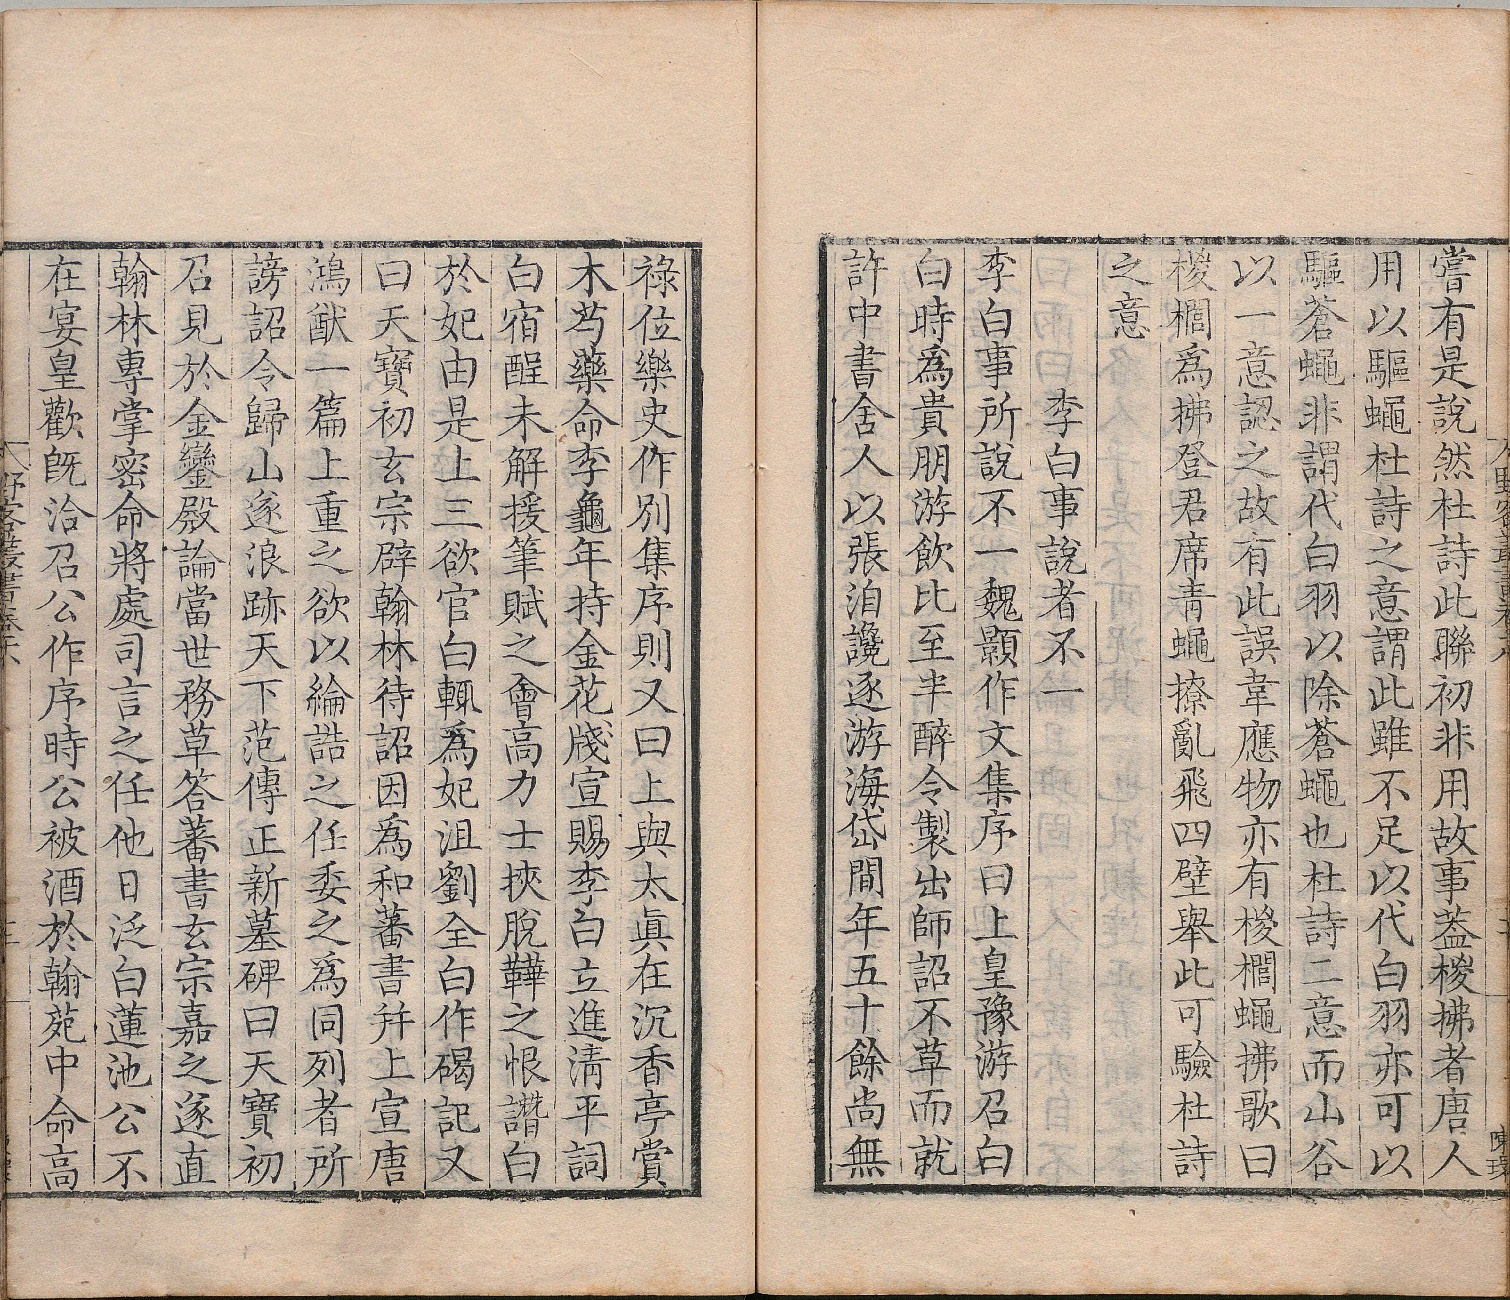 嘗有是說然杜詩此聯初非用故事蓋椶拂者唐人
用以驅蠅杜詩之意謂此雖不足以代白羽亦可以
驅蒼蠅非謂代白羽以除蒼蠅也杜詩二意而山谷
以一意認之故有此誤韋應物亦有椶櫚蠅拂歌曰
椶櫚爲拂登君席青蠅撩亂飛四壁舉此可驗杜詩
之意
李白事說者不一
李白事所說不一魏顥作文集序曰上皇豫游召白
白時爲貴朋游飲比至半醉令製出師詔不草而就
許中書舍人以張洎讒逐游海岱間年五十餘尚無
祿位樂史作別集序則又曰上與太眞在沉香亭賞
木芍藥命李龜年持金花牋宣賜李白立進淸平詞
白宿酲未解援筆賦之會高力士挾脫鞾之恨譖白
於妃由是上三欲官白輒爲妃沮劉全白作碣記又
曰天寶初玄宗辟翰林待詔因爲和蕃書幷上宣唐
鴻猷一篇上重之欲以綸誥之任委之爲同列者所
謗詔令歸山遂浪跡天下范傳正新墓碑曰天寶初
召見於金鑾殿論當世務草答蕃書玄宗嘉之遂直
翰林專掌密命將處司言之任他日泛白蓮池公不
在宴皇歡旣洽召公作序時公被酒於翰苑中命高
野客叢書卷六